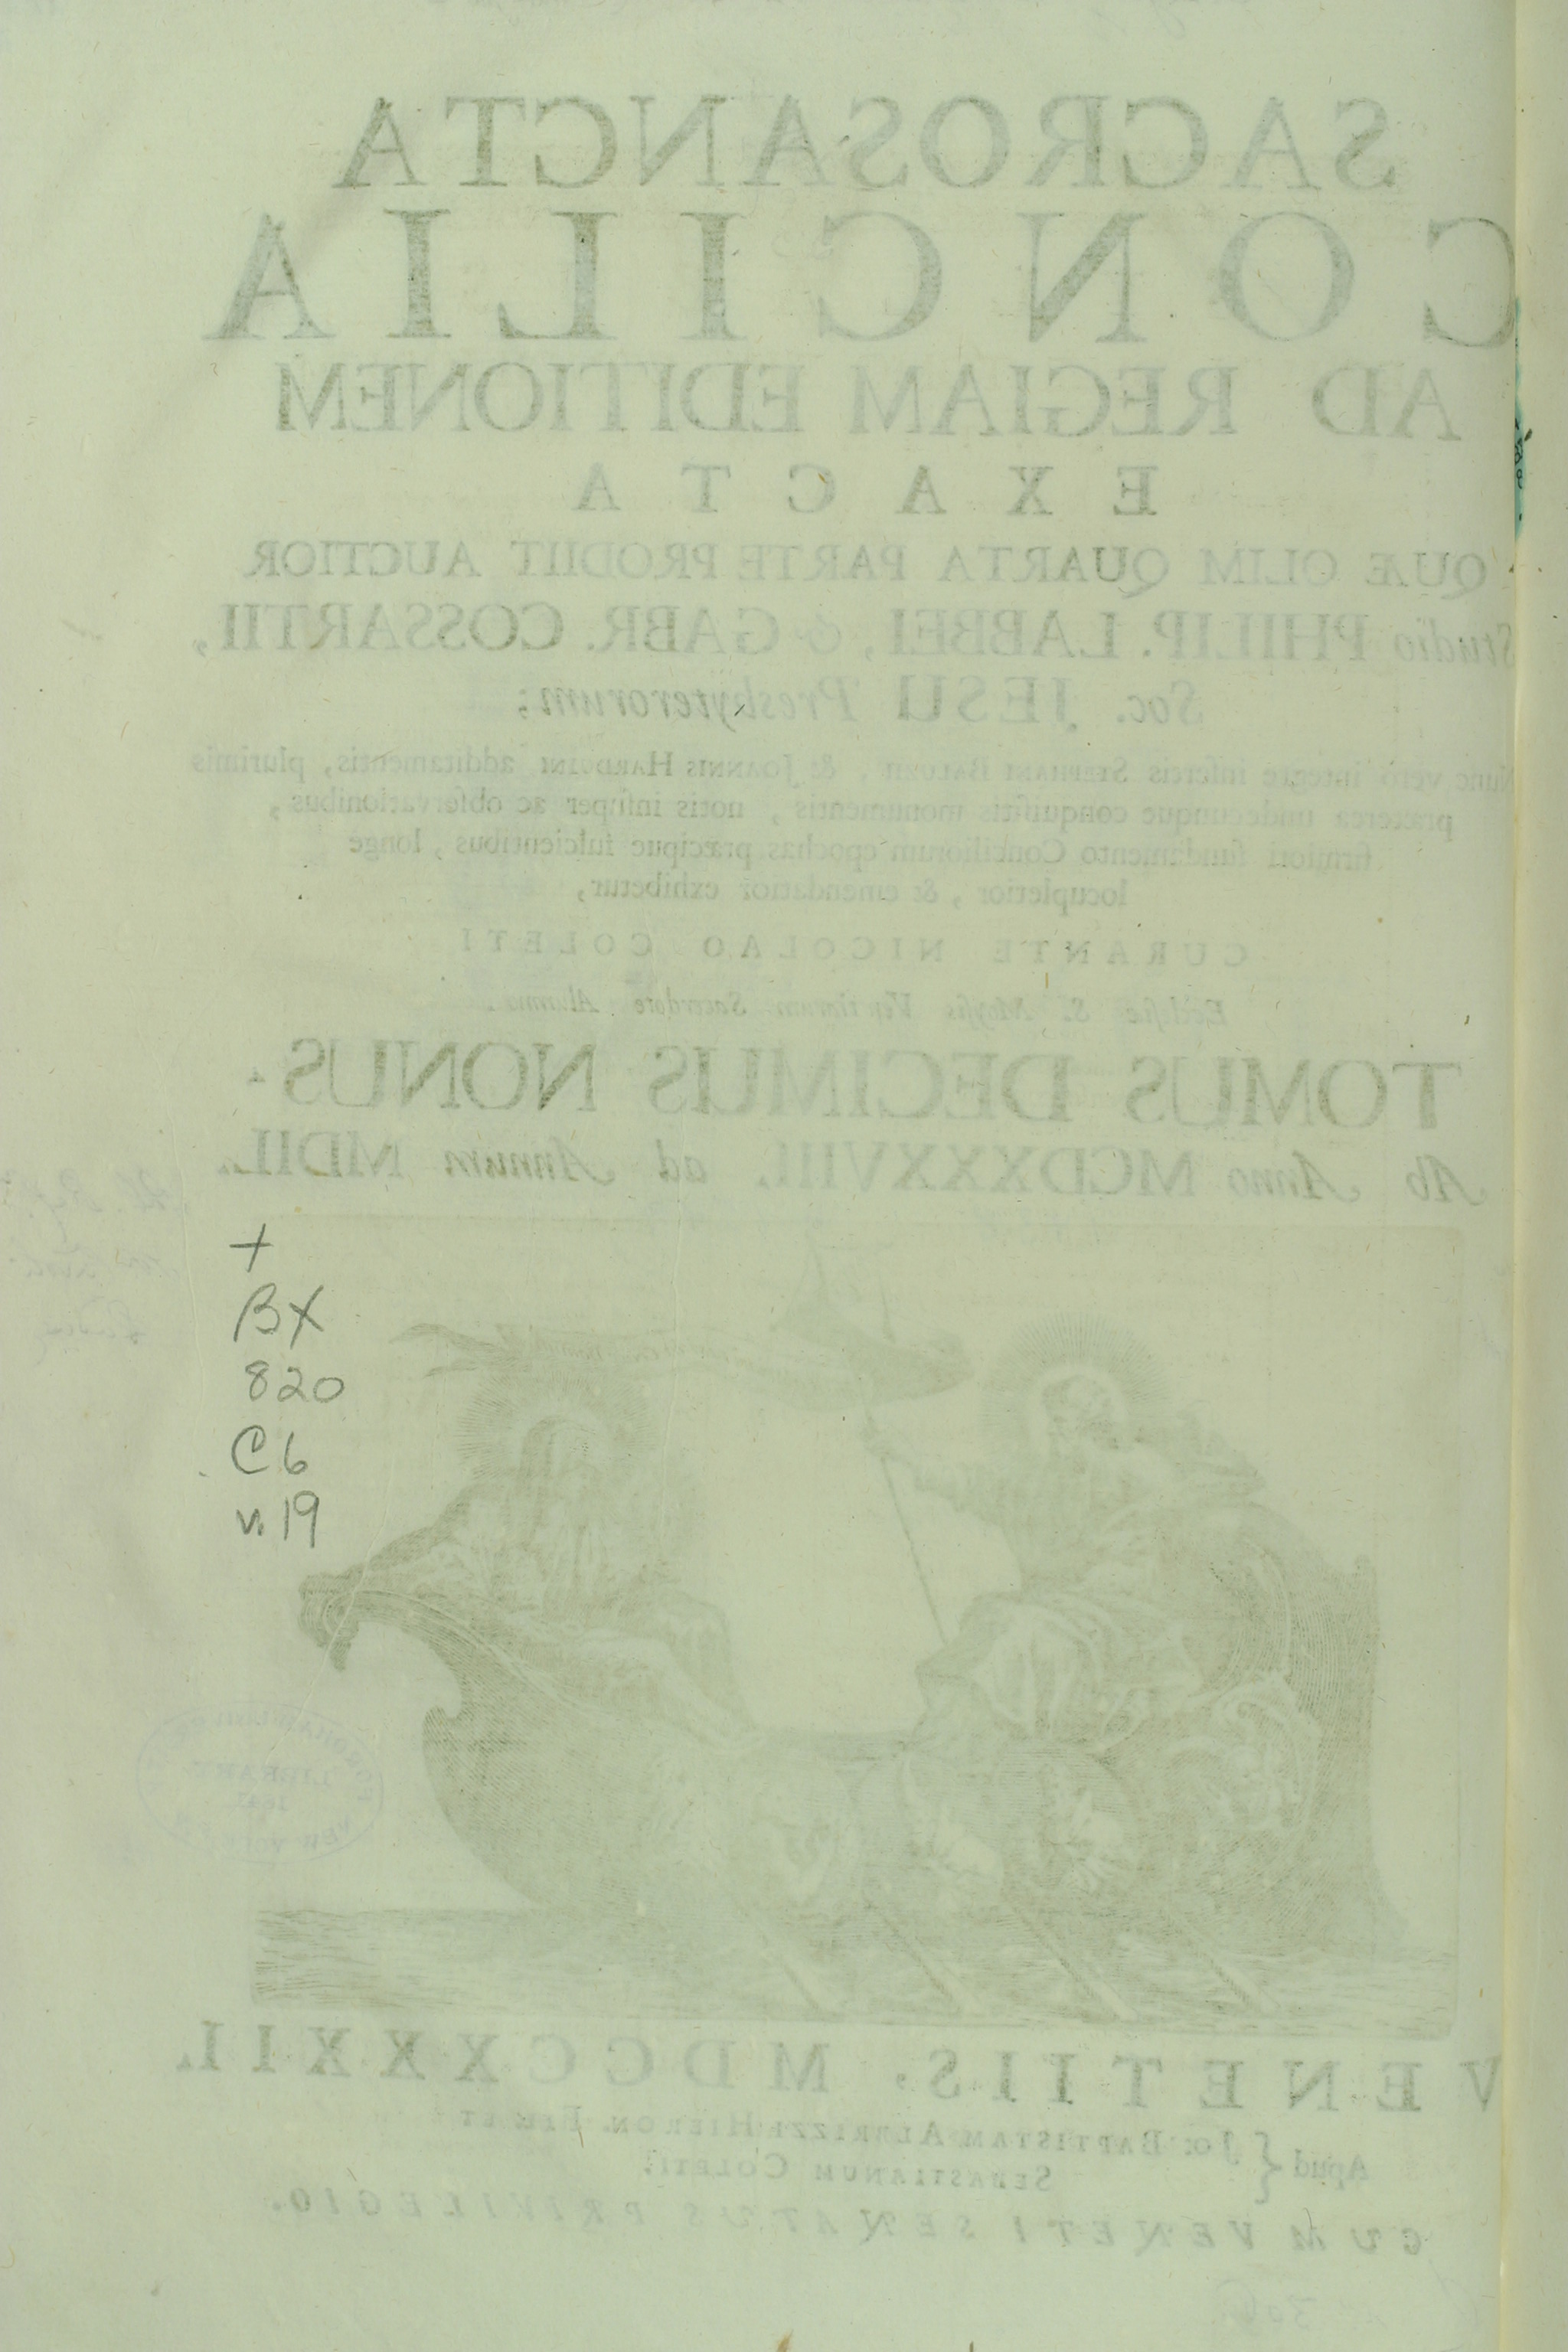 SACROSANCTA
CONCILIA
AD REGIAM EDITIONEM
EXACTA
QUÆ OLIM QUARTA PARTE PRODIIT AUCTIOR
Studio PHILIP. LABBEI, & GABR. COSSARTII,
Soc. JESU Presbyterorum;
Nunc vero integre insertis STEPHANI BALUZII, & JOANNIS HARDUINI additamentis, plurimis
præterea undecumque conquisitis monumentis, notis insuper ac observationibus,
firmiori fundamento Conciliorum epochas præcipue fulcientibus, longe
locupletior, & emendatior exhibetur,
CURANTE NICOLAO COLETI
Ecclesiæ S. Moysis Venetiarum Sacerdote Alumno.
TOMUS DECIMUS NONUS.
Ab Anno MCDXXXVIII. ad Annum MDII.
+
BX
820
C6
v. 19
LIBRARY
VENETIIS, MDCCXXXII.
Apud { Jo: BAPTISTAM ALBRIZZI HIERON. FIL. ET
SEBASTIANUM COLETI.
CUM VENETI SENATUS PRIVILEGIO.